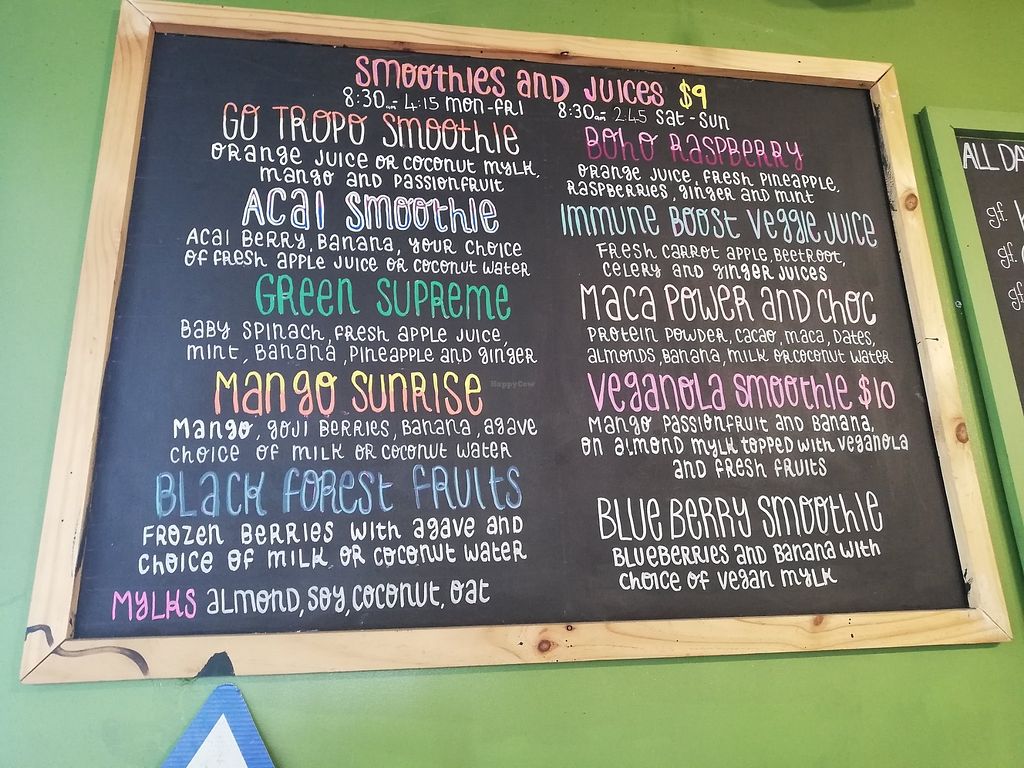 Smoothies and Juices $9
8:30am 4:15 mon-fri 8:30am 2.45 sat-sun
Go Tropo Smoothie
orange juice or coconut mylk,
mango and passionfruit
Acai Smoothie
Acai berry, banana, your choice
of fresh apple juice or coconut water
Green Supreme
Baby spinach, fresh apple juice,
mint, banana, pineapple and ginger
Mango Sunrise
Mango, goji berries, banana, agave
choice of milk or coconut water
Black Forest Fruits
Frozen berries with agave and
choice of milk or coconut water
Mylks almond, soy, coconut, oat
Boho Raspberry
orange juice, fresh pineapple,
raspberries, ginger and mint
Immune Boost Veggie Juice
Fresh carrot apple, beetroot,
celery and ginger juices
Maca Power and Choc
protein powder, cacao, maca, dates,
almonds, banana, milk or coconut water
Veganola Smoothie $10
Mango passionfruit and banana,
on almond mylk topped with veganola
and fresh fruits
Blue Berry Smoothie
Blueberries and banana with
choice of vegan mylk
HappyCow
ALL DA
gf.
gf.
gf